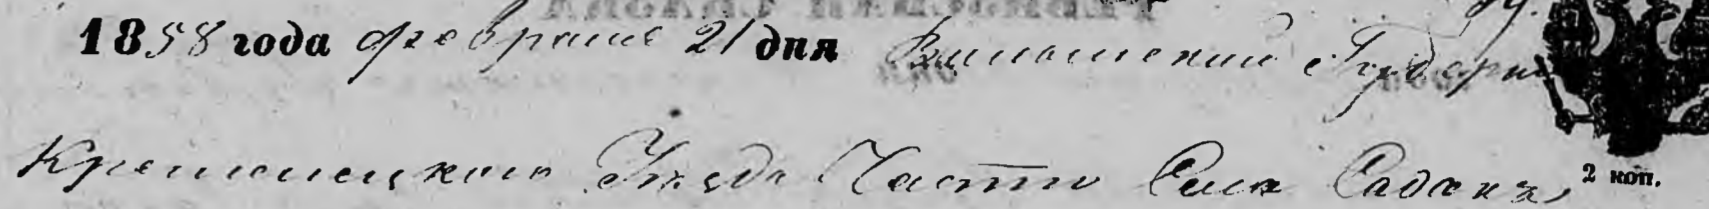 1858 года февраля 21 дня Волынской Губерни
Кременецкого Уезда Части Села Садок
2 коп.